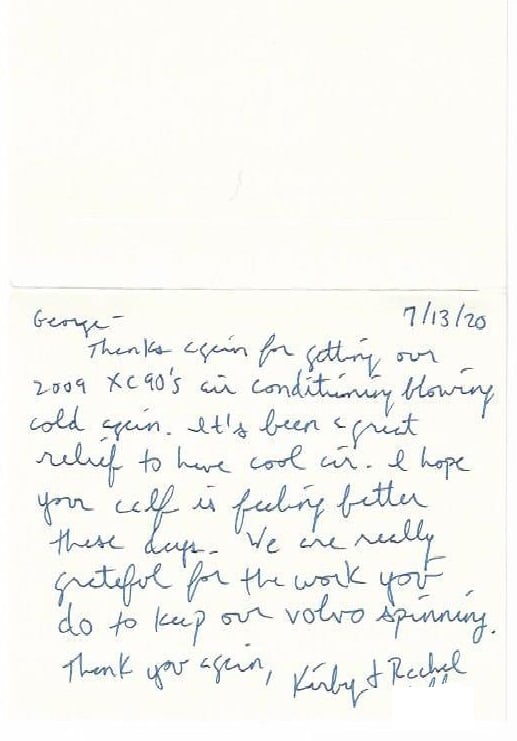 George- 7/13/20
Thanks again for getting our
2009 XC90's air conditioning blowing
cold again. It's been a great
relief to have cool air. I hope
your calf is feeling better
these days. We are really
grateful for the work you
do to keep our volvo spinning.
Thank you again, Kirby & Rachel